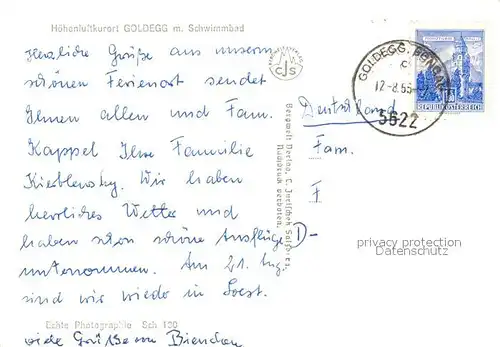 Höhenluftkurort GOLDEGG m. Schwimmbad
Herzliche Grüße aus unserm
schönen Ferienort sendet
Ihnen allen und Fam.
Kappel Ihre Familie
Wir haben
herrliches Wetter und
haben schon schöne Ausflüge
unternommen. Am 21. Aug.
sind wir wieder in Soest.
Echte Photographie Sch 120
viele Grüße von
CJS
Bergwelt Verlag, C. Jurischek Salzburg,
Nachdruck verboten.
GOLDEGG,
12.-8.65
5622
REPUBLIK ÖSTERREICH
Deutschland
Fam.
F
D-
privacy protection
Datenschutz